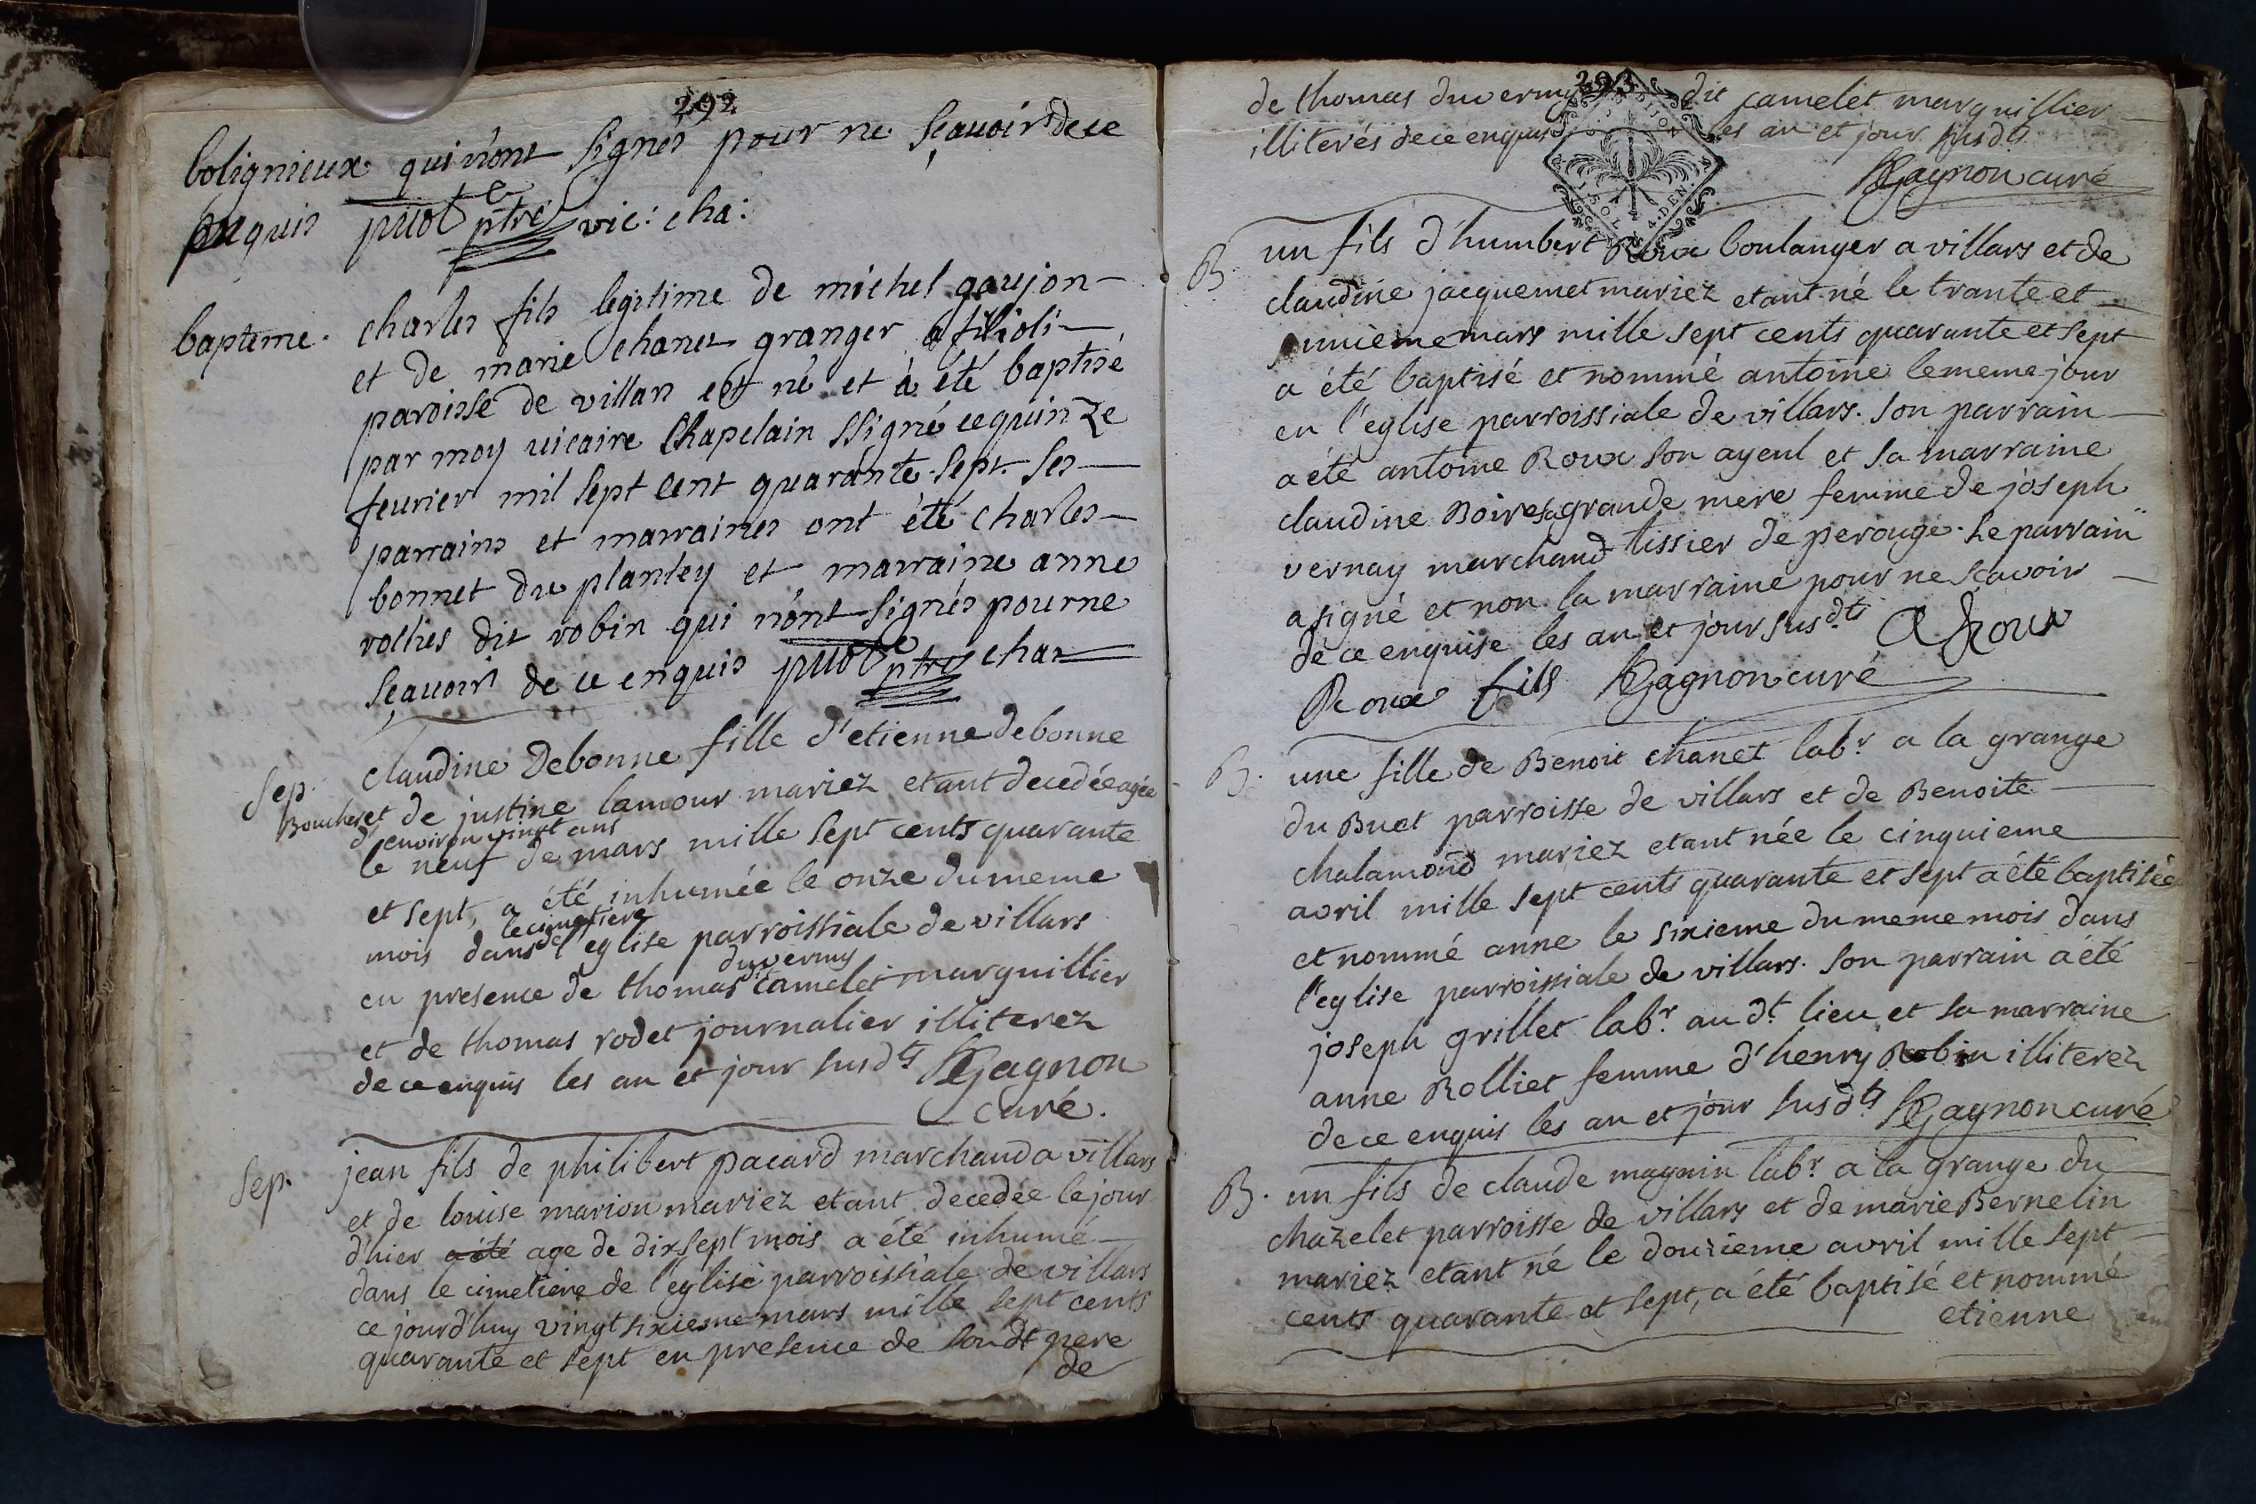 292
bolignieux qui n'ont signés pour ne sçauoir de ce
enquis puot ptre vic: cha:
bapteme. charles fils legitime de michel goujon
et de marie chanet granger a filioli
paroisse de villars est né et à été baptisé
par moy vicaire Chapelain ssigné ce quinze
feurier mil sept cent quarante sept. ses
parrains et marraines ont été charles
bonnet du plantey et marraine anne
rollies dit robin qui n'ont signés pour ne
sçauoir de ce enquis puot ptre cha
Sep. claudine Debonne fille d'etienne debonne
Boucher et de justine lamour mariez etant decedée agée
d'environ vingt ans
le neuf de mars mille sept cents quarante
et sept, a été inhumée le onze du meme
le cimetiere
mois dans de l'eglise parroissiale de villars
duvermy
en presence de thomas dit camelet marguillier
et de thomas rodet journalier illiterez
de ce enquis les an et jour susdts Gagnon
curé.
Sep. jean fils de philibert pacard marchand a villars
et de louise marion mariez etant decedée le jour
d'hier a été age de dix sept mois a été inhumé
dans le cimetiere de l'eglise parroissiale de villars
ce jourd'huy vingt sixieme mars mille sept cents
quarante et sept en presence de sondt pere
de
293
de thomas duvermy dit camelet marguillier
illiterés de ce enquis les an et jour susdts
Gagnon curé
B. un fils d'humbert Roux boulanger a villars et de
claudine jacquemet mariez etant né le trante et
unieme mars mille sept cents quarante et sept
a été baptisé et nommé antoine le meme jour
en l'eglise parroissiale de villars. son parrain
a été antoine Roux son ayeul et sa marraine
claudine Boire sa grande mere femme de joseph
vernay marchand tissier de perouge. le parrain
a signé et non la marraine pour ne scavoir
de ce enquise les an et jour susdts A Roux
Roux fils Gagnon curé
B. une fille de Benoit chanet labr a la grange
du Buet parroisse de villars et de Benoite
chalamond mariez etant née le cinquieme
avril mille sept cents quarante et sept a été baptisée
et nommé anne le sixieme du meme mois dans
l'eglise parroissiale de villars. son parrain a été
joseph grillet labr au dt lieu et sa marraine
anne Rolliet femme d'henry Robin illiterez
de ce enquis les an et jour susdts Gagnon curé
B. un fils de claude magnin labr a la grange du
chazelet parroisse de villars et de marie Bernelin
mariez etant né le douzieme avril mille sept
cents quarante et sept, a été baptisé et nommé
etienne